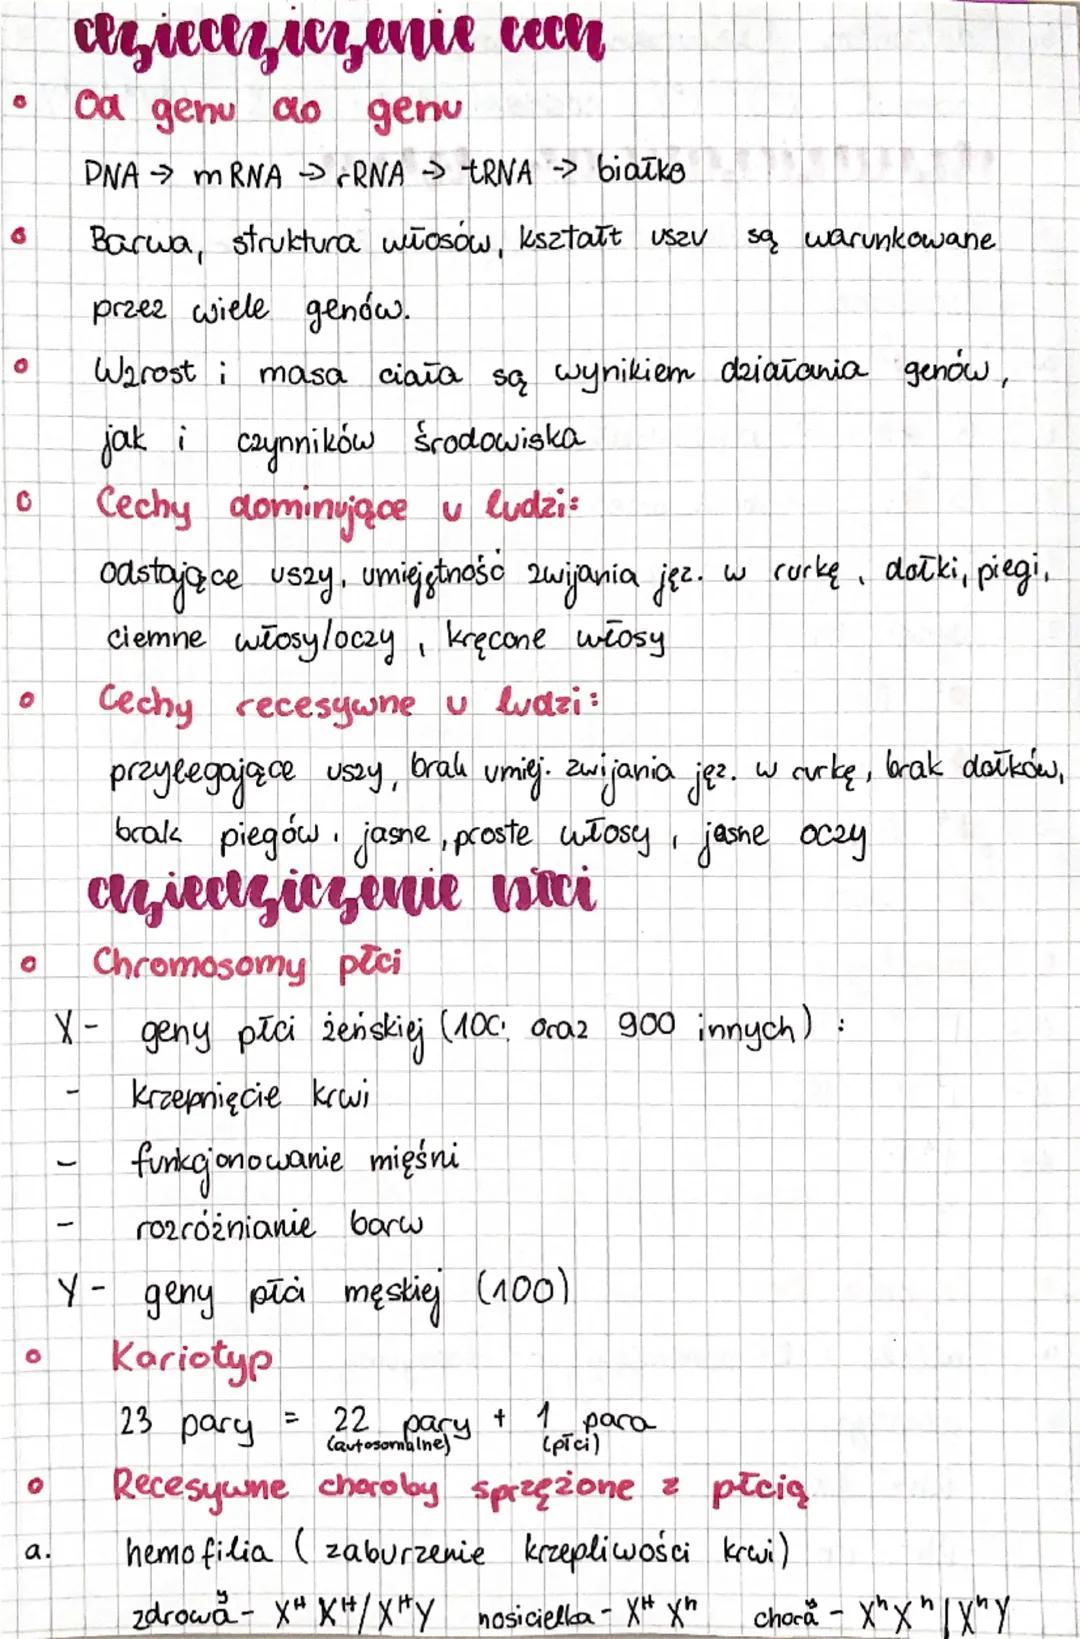 dziedziczenie cech
Od genu do genu
DNA → mRNA → rRNA → tRNA → białko
Barwa, struktura włosów, kształt uszu są warunkowane
przez wiele genów.
Wzrost i masa ciała są wynikiem działania genów,
jak i czynników środowiska
Cechy dominujące u ludzi:
odstające uszy, umiejętność zwijania jęz. w rurkę, dołki, piegi,
ciemne włosy/oczy, kręcone włosy
Cechy recesywne u ludzi:
przylegające uszy, brak umiej. zwijania jęz. w rurkę, brak dołków,
brak piegów, jasne, proste włosy, jasne oczy
dziedziczenie płci
Chromosomy płci
X - geny płci żeńskiej (100 oraz 900 innych) :
- krzepnięcie krwi
- funkcjonowanie mięśni
- rozróżnianie barw
Y - geny płci męskiej (100)
Kariotyp
23 pary = 22 pary + 1 para
(autosomalne) (płci)
Recesywne choroby sprzężone z płcią
a. hemofilia (zaburzenie krzepliwości krwi)
zdrowa/y - X^H X^H / X^H Y nosicielka - X^H X^h chora/y - X^h X^h / X^h Y